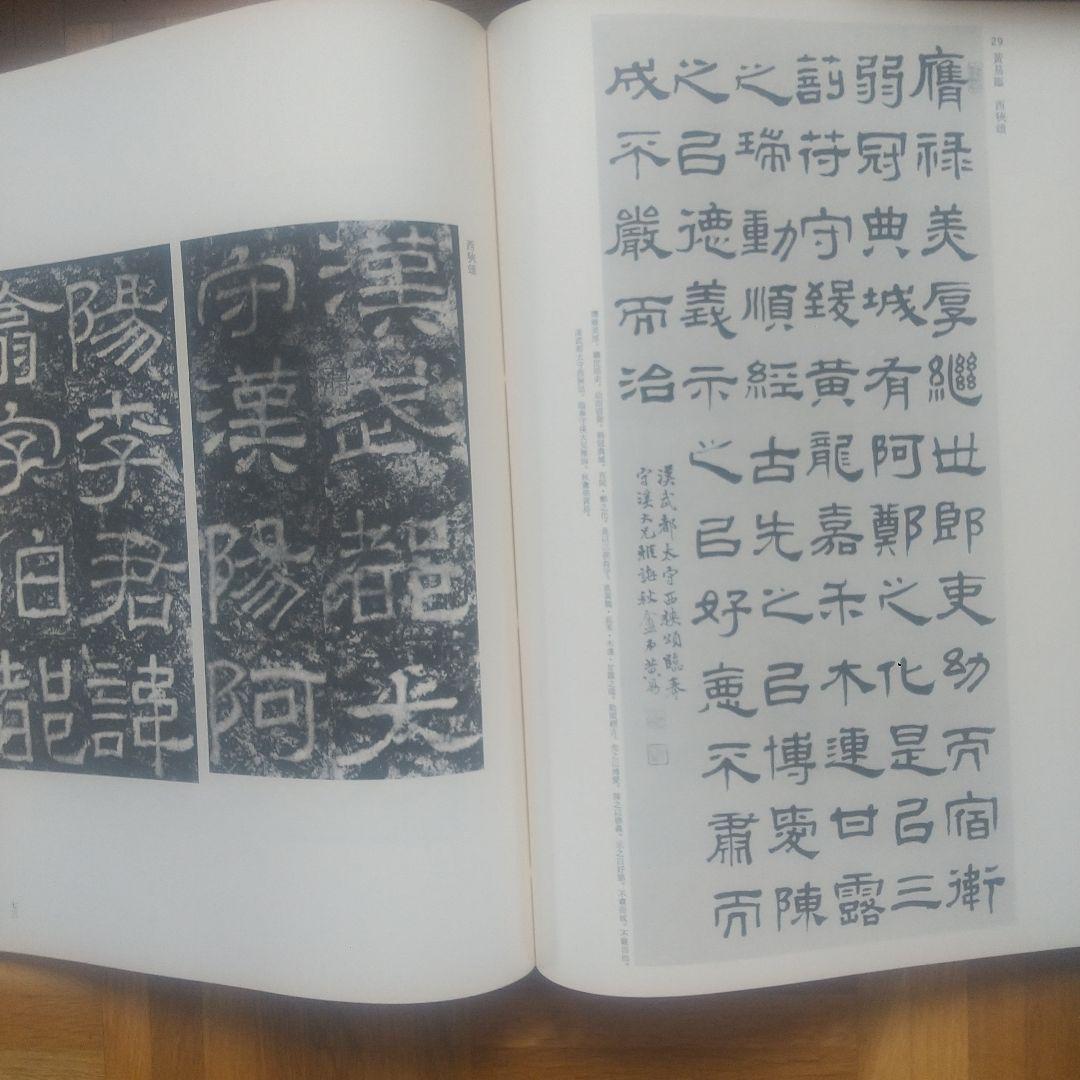 29 黄易臨 西狹頌
膺禄美厚繼世郎吏幼而宿衛
弱冠典城有阿鄭之化是㠯三
莂符守致黄龍嘉禾木連甘露
之瑞動順經古先之㠯博愛陳
之㠯德義示之㠯好惡不肅而
成不嚴而治
漢武都太守西狹頌臨奉
守溪大兄雅誨秋盦弟黄易
西狹頌
漢武都太
守漢陽阿
陽李君諱
翕字伯都